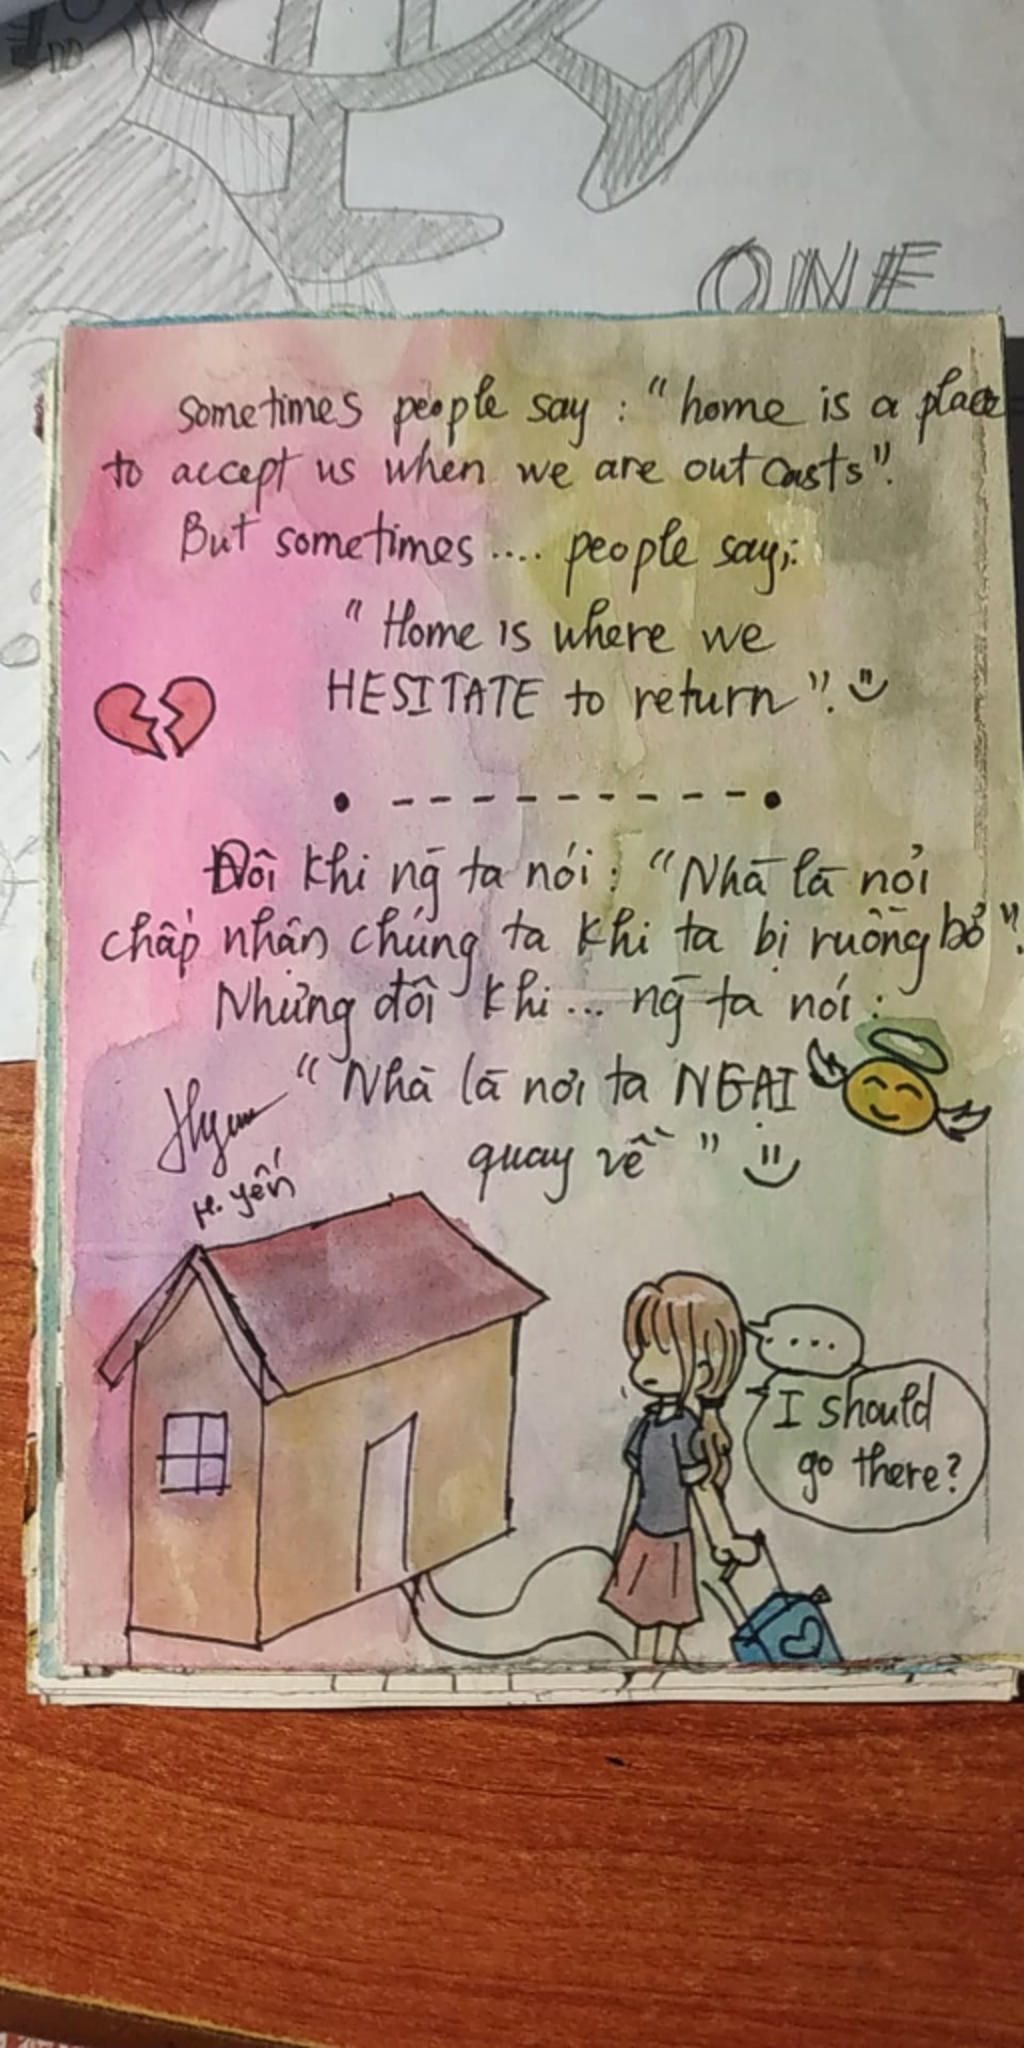 ONE
sometimes people say : "home is a place
to accept us when we are outcasts".
But sometimes .... people say:
"Home is where we
HESITATE to return".
Đôi khi ng̃ ta nói : "Nhà là nơi
chấp nhận chúng ta khi ta bị ruồng bỏ".
Nhưng đôi khi... ng̃ ta nói :
"Nhà là nơi ta NGẠI
quay về"
H. Yến
....
I should
go there?